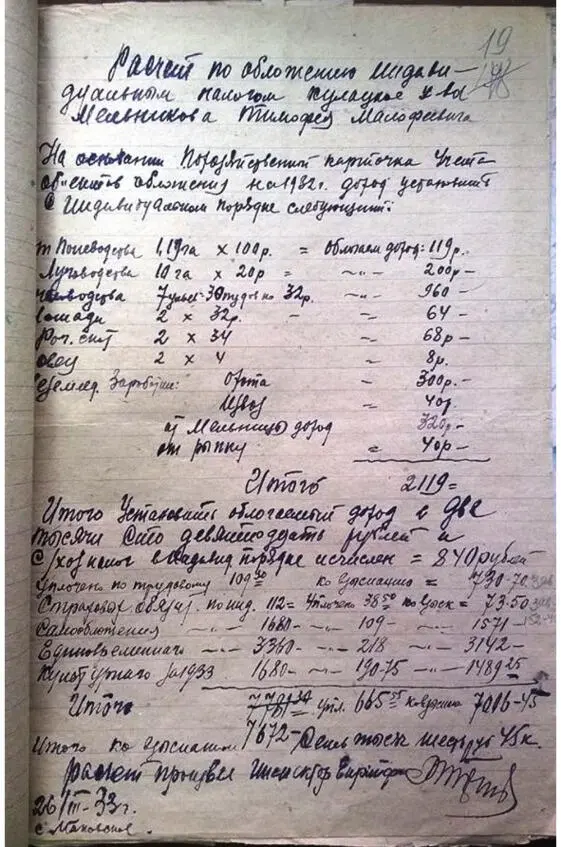 19
Расчет по обложению индиви–
дуальным налогом кулацкое х-ва
Мельникова Тимофея Малофеевича
На основании Похозяйственной карточка учета
об'ектов обложения на 1932г. доход установить
в индивидуальном порядке следующий:
Полеводства 1,19 га х 100р. = Облагаем доход: 119р.
Луговодства 10 га х 20р = -"- 200р –
7 ульев 30 пудов по 32р. -"- 960 –
2 х 32р. – -"- 64 –
Рог. скот 2 х 34 = 68р –
овец 2 х 4 = 8р.
Заработки: Охота – 300р.–
Извоз = 40р.
от Мельницы доход 320р–
от рынку = 40р –
Итого 2119=
Итого Установить облагаемый доход в две
тысячи сто девятнадцать рублей и
с/хоз налог в индивид порядке исчислен = 840 рублей
Уплочено по трудовому 109 30 ко взысканию = 730-70
Страховое по инд. 112= уплочено 38 50 ко взыск = 73-50
Самообложения -"- 1680– -"- 109– -"- 1571 –
Единовременного -"- 3360– -"- 218 -"- 3142 –
Культурнаго за 1933 1680– -"- 190-75 -"- 1489 25
Итого упл. 665 55 ко взысканию 7006-45
Итого ко взысканию 7672–
Расчет произвел инспектор
26/III-33г.
с. Маковское.